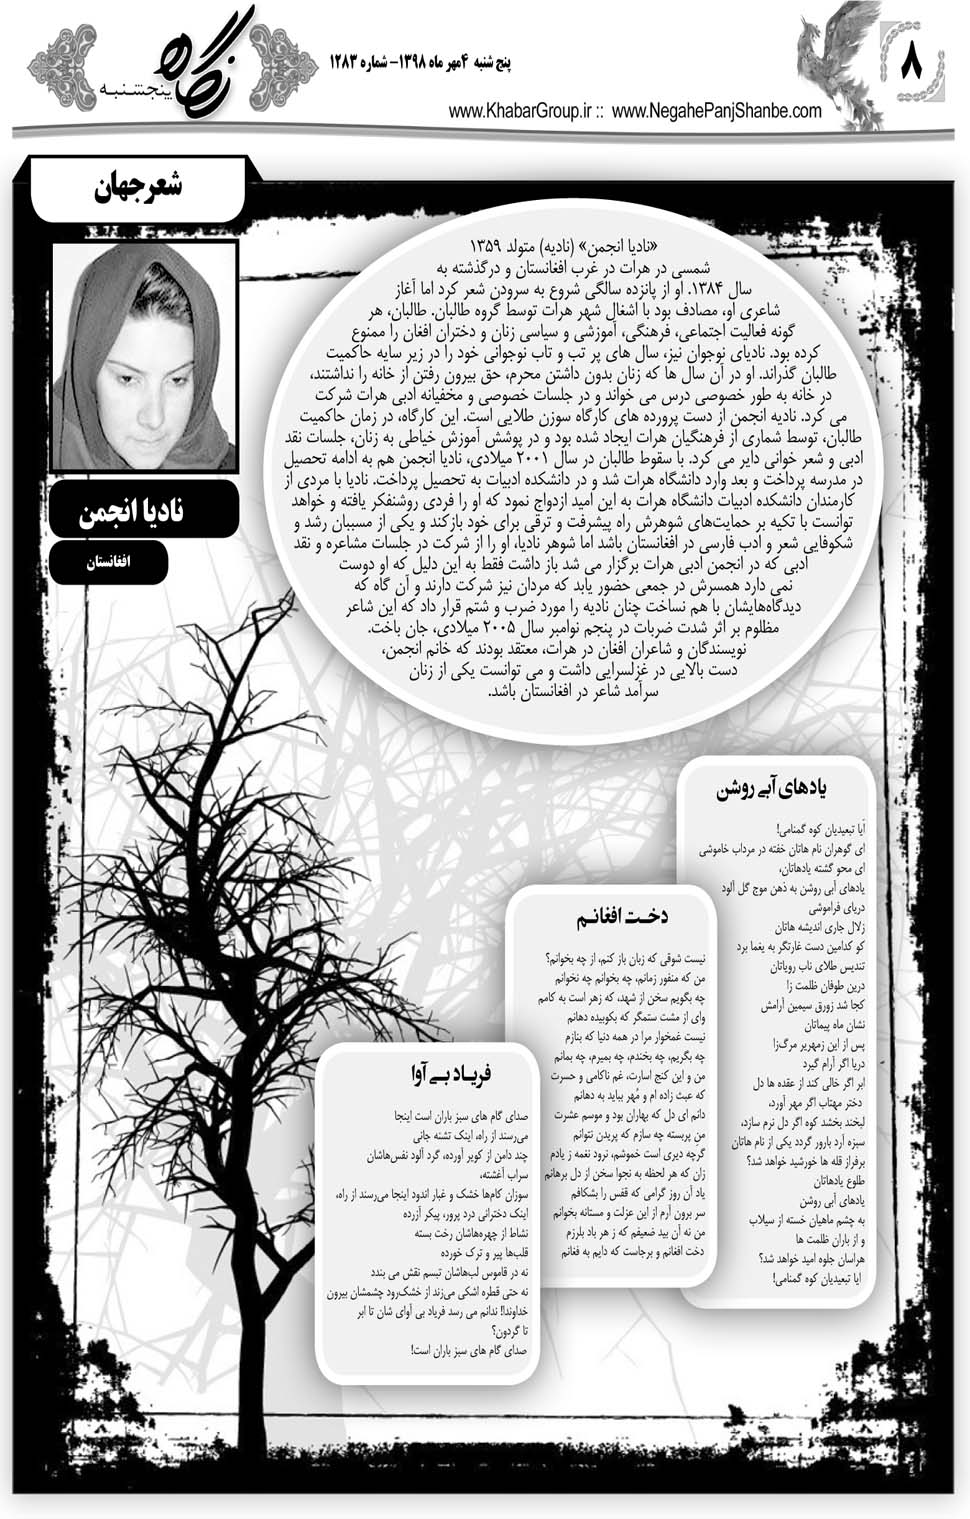 ۸
پنج شنبه ۴مهر ماه ۱۳۹۸- شماره ۱۲۸۳
نگاه
پنجشنبه
www.KhabarGroup.ir :: www.NegahePanjShanbe.com
شعرجهان
نادیا انجمن
افغانستان
«نادیا انجمن» (نادیه) متولد ۱۳۵۹
شمسی در هرات در غرب افغانستان و درگذشته به
سال ۱۳۸۴. او از پانزده سالگی شروع به سرودن شعر کرد اما آغاز
شاعری او، مصادف بود با اشغال شهر هرات توسط گروه طالبان. طالبان، هر
گونه فعالیت اجتماعی، فرهنگی، آموزشی و سیاسی زنان و دختران افغان را ممنوع
کرده بود. نادیای نوجوان نیز، سال های پر تب و تاب نوجوانی خود را در زیر سایه حاکمیت
طالبان گذراند. او در آن سال ها که زنان بدون داشتن محرم، حق بیرون رفتن از خانه را نداشتند،
در خانه به طور خصوصی درس می خواند و در جلسات خصوصی و مخفیانه ادبی هرات شرکت
می کرد. نادیه انجمن از دست پرورده های کارگاه سوزن طلایی است. این کارگاه، در زمان حاکمیت
طالبان، توسط شماری از فرهنگیان هرات ایجاد شده بود و در پوشش آموزش خیاطی به زنان، جلسات نقد
ادبی و شعر خوانی دایر می کرد. با سقوط طالبان در سال ۲۰۰۱ میلادی، نادیا انجمن هم به ادامه تحصیل
در مدرسه پرداخت و بعد وارد دانشگاه هرات شد و در دانشکده ادبیات به تحصیل پرداخت. نادیا با مردی از
کارمندان دانشکده ادبیات دانشگاه هرات به این امید ازدواج نمود که او را فردی روشنفکر یافته و خواهد
توانست با تکیه بر حمایت‌های شوهرش راه پیشرفت و ترقی برای خود بازکند و یکی از مسببان رشد و
شکوفایی شعر و ادب فارسی در افغانستان باشد اما شوهر نادیا، او را از شرکت در جلسات مشاعره و نقد
ادبی که در انجمن ادبی هرات برگزار می شد باز داشت فقط به این دلیل که او دوست
نمی دارد همسرش در جمعی حضور یابد که مردان نیز شرکت دارند و آن گاه که
دیدگاه‌هایشان با هم نساخت چنان نادیه را مورد ضرب و شتم قرار داد که این شاعر
مظلوم بر اثر شدت ضربات در پنجم نوامبر سال ۲۰۰۵ میلادی، جان باخت.
نویسندگان و شاعران افغان در هرات، معتقد بودند که خانم انجمن،
دست بالایی در غزلسرایی داشت و می توانست یکی از زنان
سرآمد شاعر در افغانستان باشد.
یادهای آبی روشن
آیا تبعیدیان کوه گمنامی!
ای گوهران نام هاتان خفته در مرداب خاموشی
ای محو گشته یادهاتان،
یادهای آبی روشن به ذهن موج گل آلود
دریای فراموشی
زلال جاری اندیشه هاتان
کو کدامین دست غارتگر به یغما برد
تندیس طلای ناب رویاتان
درین طوفان ظلمت زا
کجا شد زورق سیمین آرامش
نشان ماه پیماتان
پس از این زمهریر مرگ‌زا
دریا اگر آرام گیرد
ابر اگر خالی کند از عقده ها دل
دختر مهتاب اگر مهر آورد،
لبخند بخشد کوه اگر دل نرم سازد،
سبزه آرد بارور گردد یکی از نام هاتان
برفراز قله ها خورشید خواهد شد؟
طلوع یادهاتان
یادهای آبی روشن
به چشم ماهیان خسته از سیلاب
و از باران ظلمت ها
هراسان جلوه امید خواهد شد؟
ایا تبعیدیان کوه گمنامی!
دخـت افغانـم
نیست شوقی که زبان باز کنم، از چه بخوانم؟
من که منفور زمانم، چه بخوانم چه نخوانم
چه بگویم سخن از شهد، که زهر است به کامم
وای از مشت ستمگر که بکوبیده دهانم
نیست غمخوار مرا در همه دنیا که بنازم
چه بگریم، چه بخندم، چه بمیرم، چه بمانم
من و این کنج اسارت، غم ناکامی و حسرت
که عبث زاده ام و مُهر بباید به دهانم
دانم ای دل که بهاران بود و موسم عشرت
من پربسته چه سازم که پریدن نتوانم
گرچه دیری است خموشم، نرود نغمه ز یادم
زان که هر لحظه به نجوا سخن از دل برهانم
یاد آن روز گرامی که قفس را بشکافم
سر برون آرم از این عزلت و مستانه بخوانم
من نه آن بید ضعیفم که ز هر باد بلرزم
دخت افغانم و برجاست که دایم به فغانم
فریـاد بـی‌آوا
صدای گام های سبز باران است اینجا
می‌رسند از راه، اینک تشنه جانی
چند دامن از کویر آورده، گرد آلود نفس‌هاشان
سراب آغشته،
سوزان کام‌ها خشک و غبار اندود اینجا می‌رسند از راه،
اینک دخترانی درد پرور، پیکر آزرده
نشاط از چهره‌هاشان رخت بسته
قلب‌ها پیر و ترک خورده
نه در قاموس لب‌هاشان تبسم نقش می بندد
نه حتی قطره اشکی می‌زند از خشک‌رود چشمشان بیرون
خداوندا! ندانم می رسد فریاد بی آوای شان تا ابر
تا گردون؟
صدای گام های سبز باران است!